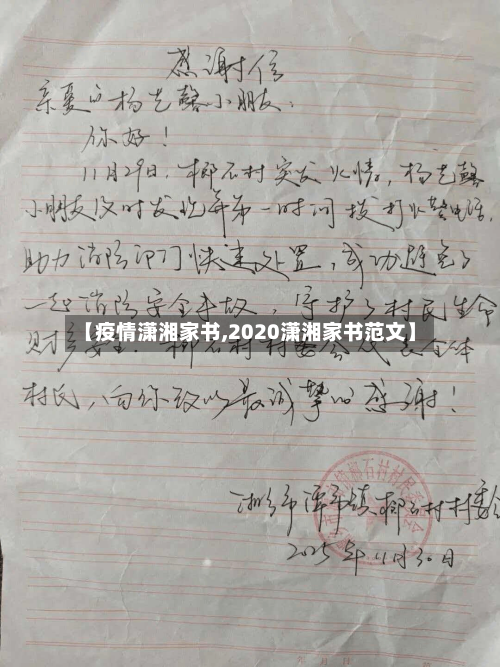 感谢信
亲爱的杨芝馨小朋友:
你好!
11月29日,椰石村突发火情。杨芝馨
小朋友及时发现并第一时间拨打火警电话,
助力消防部门快速处置,成功避免了
一起消防安全事故,守护了村民生命
【疫情潇湘家书,2020潇湘家书范文】
财产安全.村委会代表全体
村民,向你致以最诚挚的感谢!
湘乡市潭市镇椰石村村委会
2025年11月30日